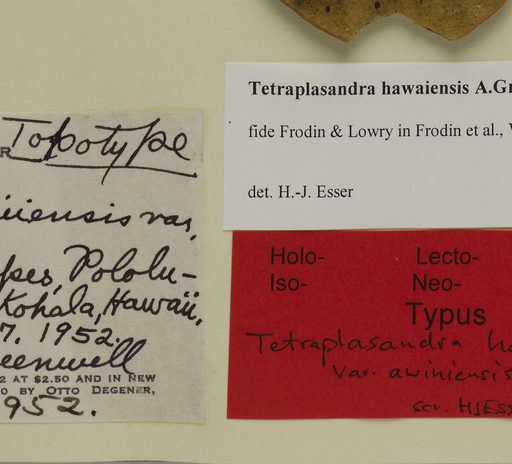 R Topotype
iiensis var,
Pololu-
Kohala, Hawaii,
7. 1952.
eenwell
2 AT $2.50 AND IN NEW
O BY OTTO DEGENER,
952.
Tetraplasandra hawaiensis A.Gr
fide Frodin & Lowry in Frodin et al., W
det. H.-J. Esser
Holo- Lecto-
Iso- Neo-
Typus
Tetraplasandra ha
var. awiniensis
scr. HJESS